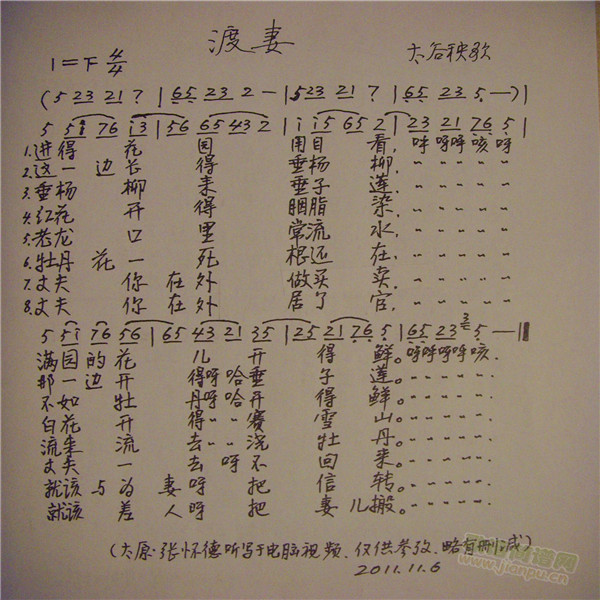 渡妻
1=下 4/4
太谷秧歌
(5 23 21 7 | 65 23 2 — | 523 21 7 | 65 23 5 —)|
5 5i 76 i3 | 56 65 43 2 | i i5 65 2 | 23 21 76 5 |
1.进得 花 园 用目 看,吽呀呀咳呀
2.这一 边长 得 垂杨 柳,〃〃〃〃
3.垂杨 柳 来 垂子 莲,〃〃〃〃
4.红花 开 得 胭脂 染,〃〃〃〃
5.老龙 口 里 常流 水,〃〃〃〃
6.牡丹 花一 死 根还 在,〃〃〃〃
7.丈夫 你 在外 做买 卖,〃〃〃〃
8.丈夫 你 在外 居了 官,〃〃〃〃
5 5i 76 56 | 65 43 21 35 | 25 21 76 5 | 65 23 5 — ‖
满园的花 儿 开 得 鲜。呀呀呀呀咳.
那一边开 得呀哈垂 子 莲。〃〃〃〃
不如 牡 丹呀哈开 得 鲜。〃〃〃〃
白花 开 得〃〃赛 雪 山。〃〃〃〃
流来 流 去〃〃浇 牡 丹。〃〃〃〃
丈夫 一 去 呀不 回 来。〃〃〃〃
就该 与为 妻呀 把 信 转。〃〃〃〃
就该 差 人呀 把 妻儿搬。〃〃〃〃
(太原·张怀德听写于电脑视频、仅供参考、略有删减)
2011.11.6
www.jianpu.cn